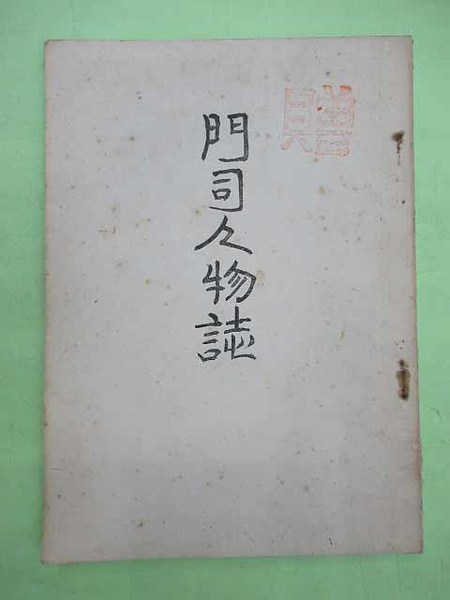 門司人物誌
贈